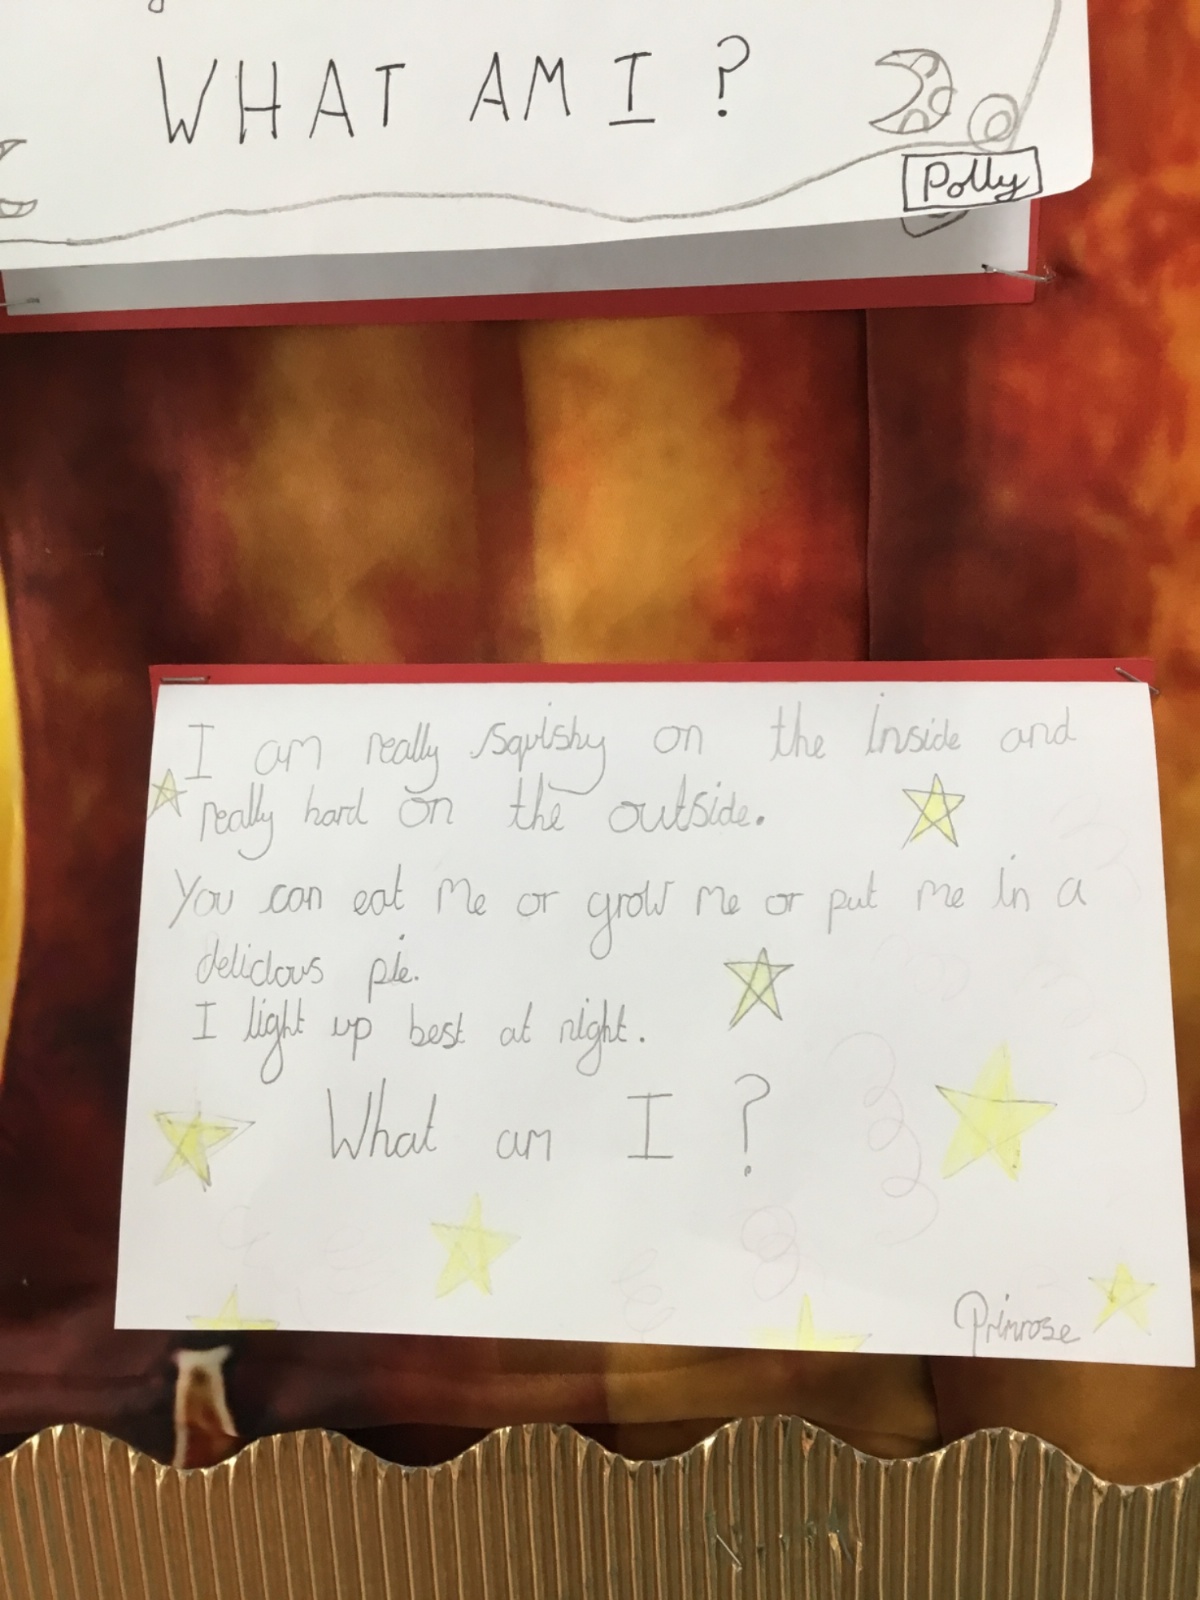 WHAT AM I ?
Polly
I am really squishy on the inside and
really hard on the outside.
You can eat me or grow me or put me in a
delicious pie.
I light up best at night.
What am I ?
Primrose